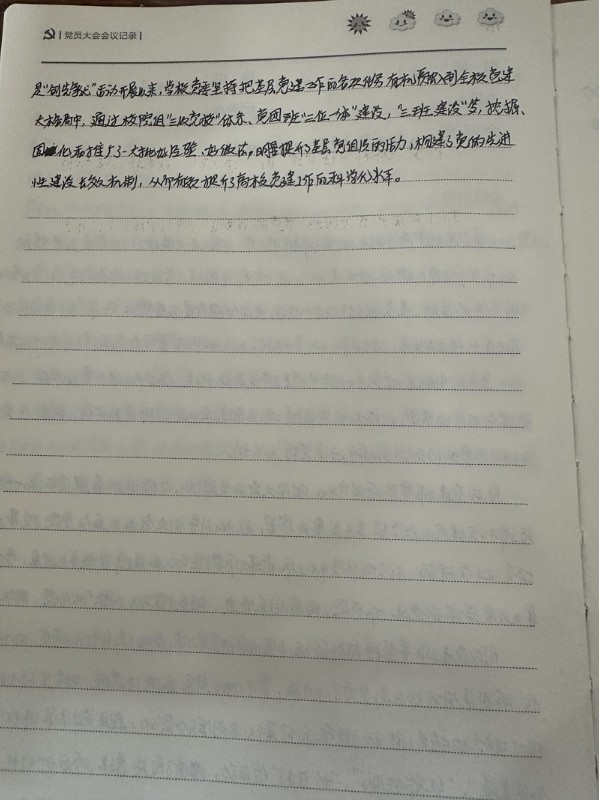 党员大会会议记录
是"创先争优"活动开展以来，学校党委坚持把基层党建工作的各项任务有机贯穿到全校党建
大格局中，通过校院组"三级党校"体系、党团班"三位一体"建设，"三型建设"等，挖掘、
固化和推广了一大批好经验、好做法，明显提升了基层党组织的活力，构建了党的先进
性建设长效机制，从而有效提升了高校党建工作的科学化水平。